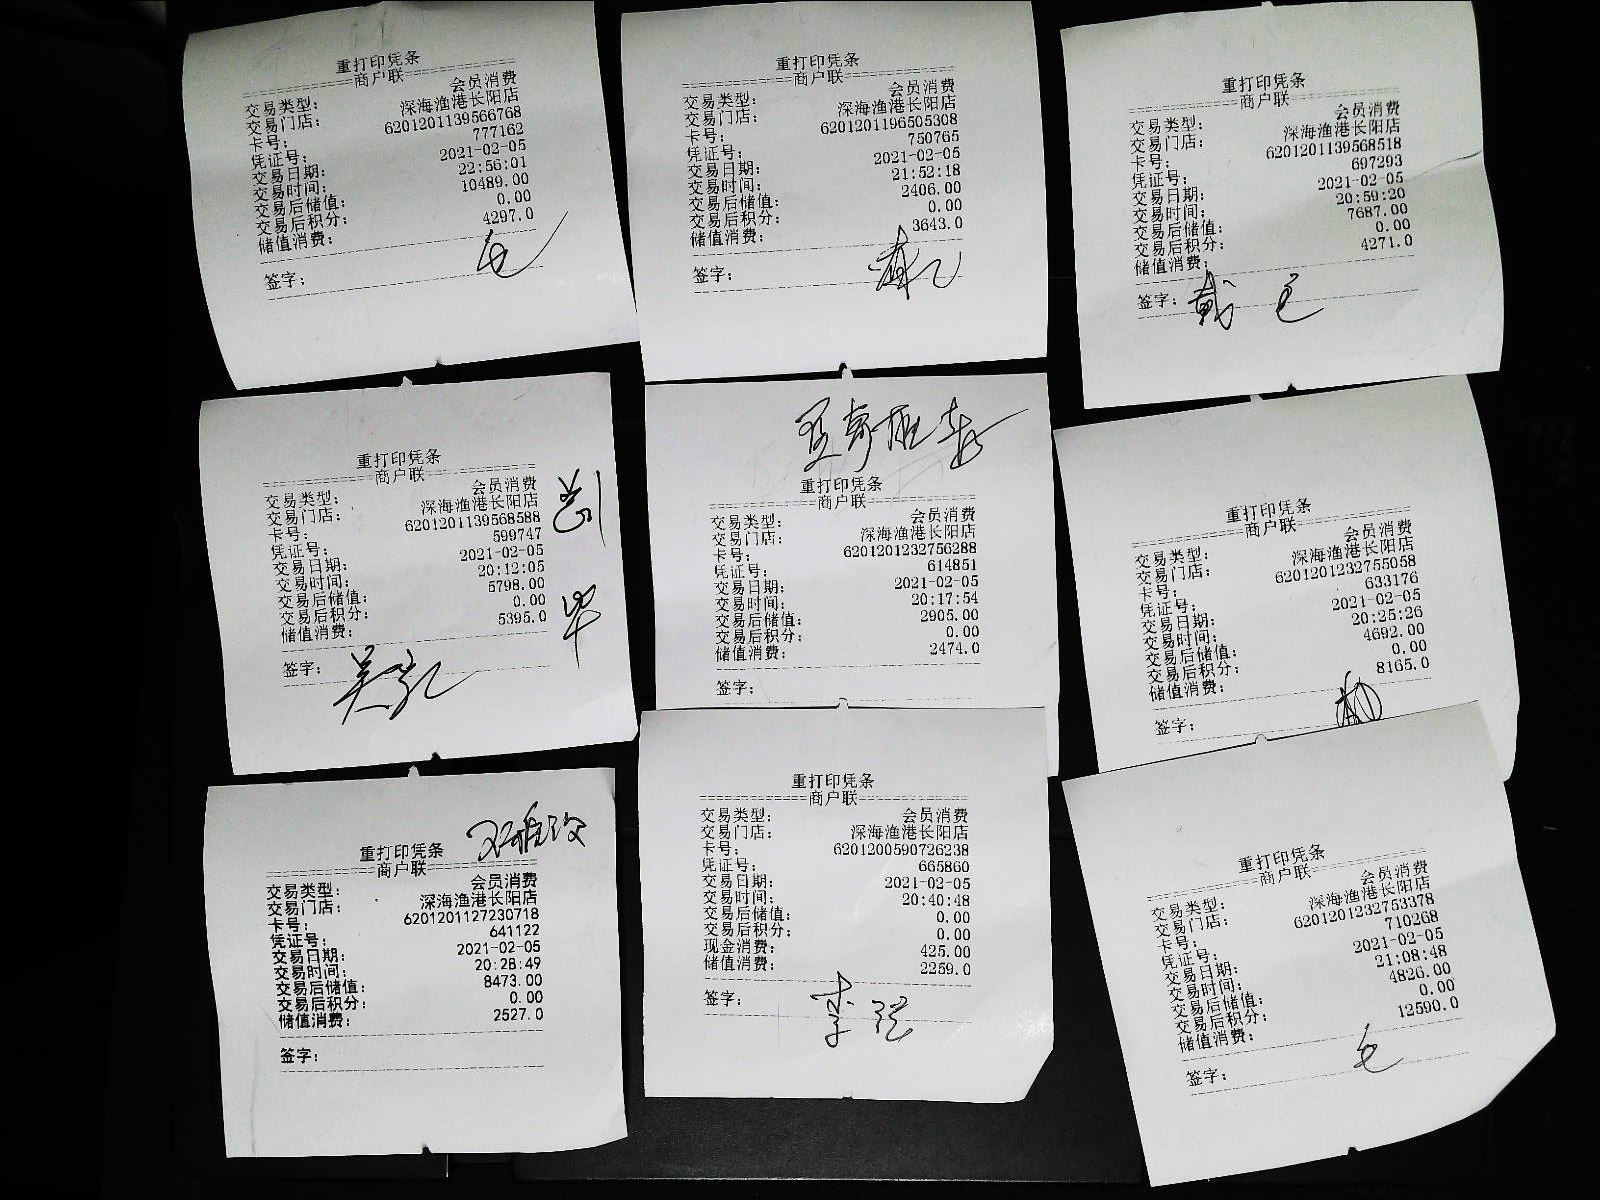 重打印凭条
商户联
交易类型： 会员消费
交易门店： 深海渔港长阳店
卡号： 6201201139566768
凭证号： 777162
交易日期： 2021-02-05
交易时间： 22:56:01
交易后储值： 10489.00
交易后积分： 0.00
储值消费： 4297.0
签字：
重打印凭条
商户联
交易类型： 会员消费
交易门店： 深海渔港长阳店
卡号： 6201201196505308
凭证号： 750765
交易日期： 2021-02-05
交易时间： 21:52:18
交易后储值： 2406.00
交易后积分： 0.00
储值消费： 3643.0
签字：
重打印凭条
商户联
交易类型： 会员消费
交易门店： 深海渔港长阳店
卡号： 6201201139568518
凭证号： 697293
交易日期： 2021-02-05
交易时间： 20:59:20
交易后储值： 7687.00
交易后积分： 0.00
储值消费： 4271.0
签字： 戴
重打印凭条
商户联
交易类型： 会员消费
交易门店： 深海渔港长阳店
卡号： 6201201139568588
凭证号： 599747
交易日期： 2021-02-05
交易时间： 20:12:05
交易后储值： 5798.00
交易后积分： 0.00
储值消费： 5395.0
签字： 吴
重打印凭条
商户联
交易类型： 会员消费
交易门店： 深海渔港长阳店
卡号： 6201201232756288
凭证号： 614851
交易日期： 2021-02-05
交易时间： 20:17:54
交易后储值： 2905.00
交易后积分： 0.00
储值消费： 2474.0
签字：
重打印凭条
商户联
交易类型： 会员消费
交易门店： 深海渔港长阳店
卡号： 6201201232755058
凭证号： 633176
交易日期： 2021-02-05
交易时间： 20:25:26
交易后储值： 4692.00
交易后积分： 0.00
储值消费： 8165.0
签字：
重打印凭条
商户联
交易类型： 会员消费
交易门店： 深海渔港长阳店
卡号： 6201201127230718
凭证号： 641122
交易日期： 2021-02-05
交易时间： 20:28:49
交易后储值： 8473.00
交易后积分： 0.00
储值消费： 2527.0
签字：
重打印凭条
商户联
交易类型： 会员消费
交易门店： 深海渔港长阳店
卡号： 6201200590726238
凭证号： 665860
交易日期： 2021-02-05
交易时间： 20:40:48
交易后储值： 0.00
交易后积分： 0.00
现金消费： 425.00
储值消费： 2259.0
签字： 李
重打印凭条
商户联
交易类型： 会员消费
交易门店： 深海渔港长阳店
卡号： 6201201232753378
凭证号： 710268
交易日期： 2021-02-05
交易时间： 21:08:48
交易后储值： 4826.00
交易后积分： 0.00
储值消费： 12590.0
签字：